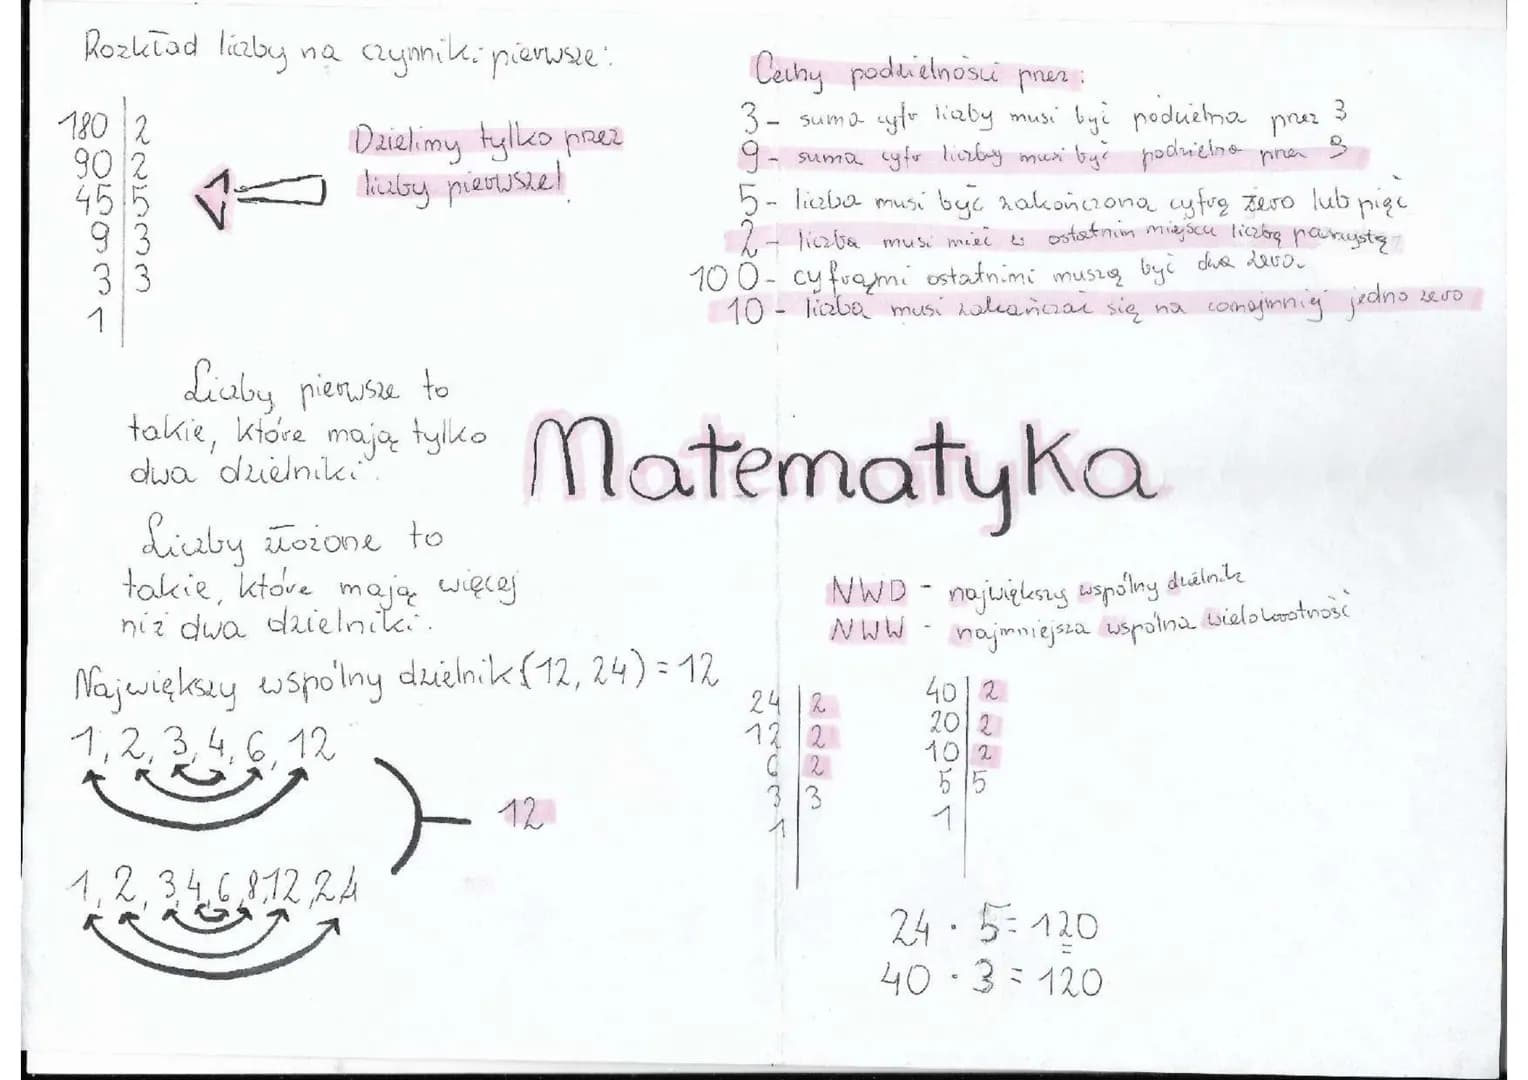 Rozkład liczby na czynniki pierwsze:
180 | 2
90 | 2
45 | 5
9 | 3
3 | 3
1
Dzielimy tylko przez
liczby pierwsze!
Cechy podzielności przez:
3 - suma cyfr liczby musi być podzielna przez 3
9 - suma cyfr liczby musi być podzielna przez 9
5 - liczba musi być zakończona cyfrą zero lub pięć
2 - liczba musi mieć w ostatnim miejscu liczbę parzystą
100 - cyframi ostatnimi muszą być dwa zera.
10 - liczba musi zakańczać się na conajmniej jedno zero
Liczby pierwsze to
takie, które mają tylko
dwa dzielniki.
Matematyka
Liczby złożone to
takie, które mają więcej
niż dwa dzielniki.
NWD - największy wspólny dzielnik
NWW - najmniejsza wspólna wielokrotność
Największy wspólny dzielnik (12, 24) = 12
1, 2, 3, 4, 6, 12
12
1, 2, 3, 4, 6, 8, 12, 24
24 | 2
12 | 2
6 | 2
3 | 3
1
40 | 2
20 | 2
10 | 2
5 | 5
1
24 · 5 = 120
40 · 3 = 120